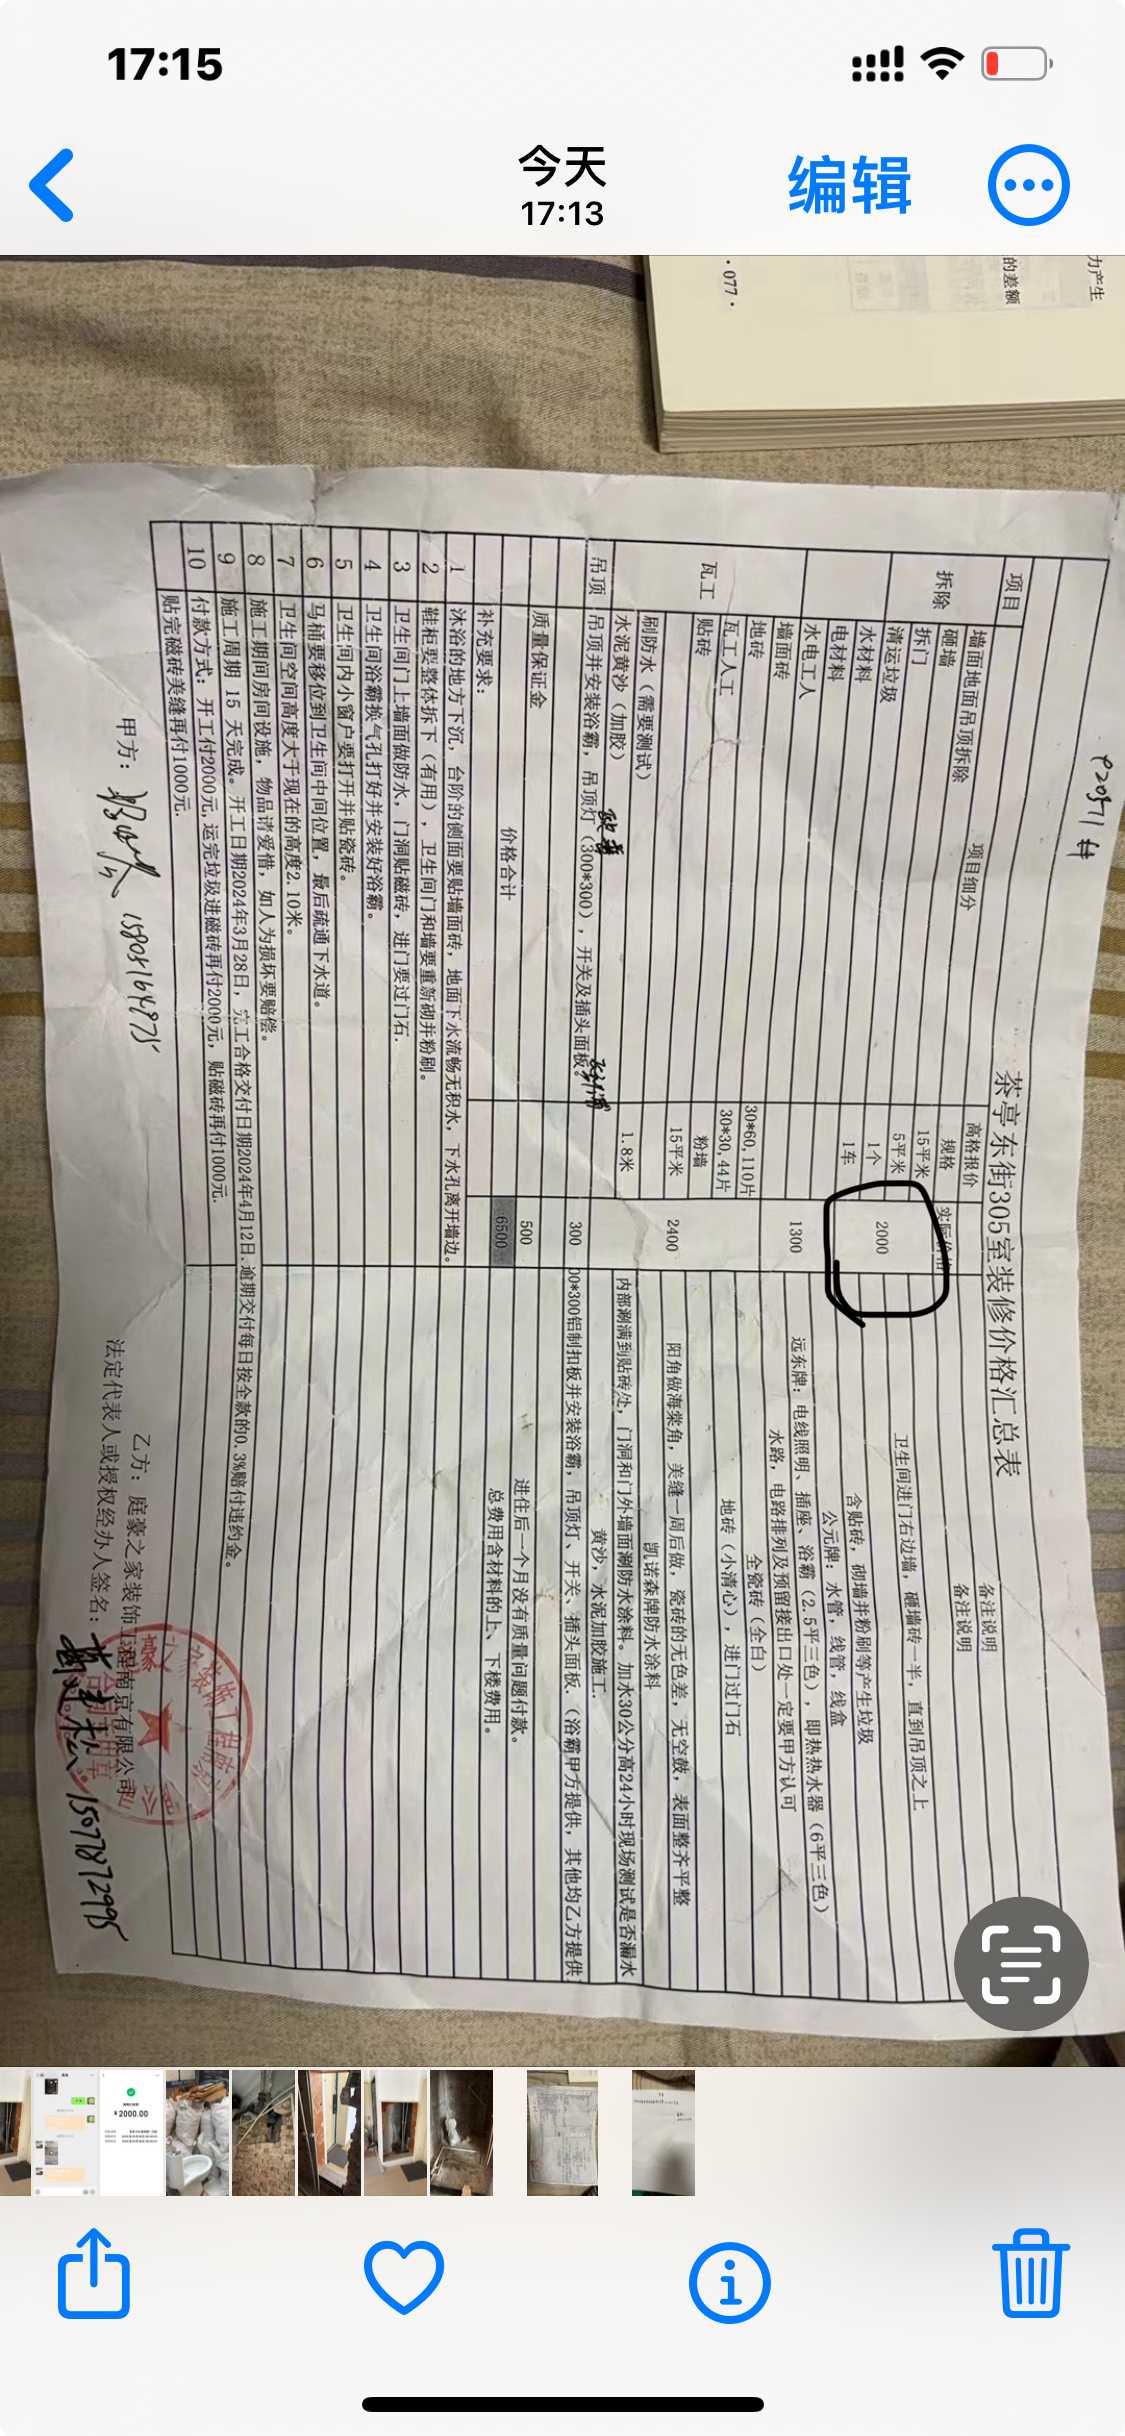 17:15
今天
17:13
编辑
力产生
的差额
·077·
茶亭东街305室装修价格汇总表
项目
项目细分
高格报价
备注说明
规格
实际价格
备注说明
拆除
墙面地面吊顶拆除
15平米
2000
砸墙
5平米
卫生间进门右边墙，砸墙砖一半，直到吊顶之上
拆门
1个
清运垃圾
1车
含贴砖，砌墙并粉刷等产生垃圾
水材料
1300
公元牌：水管，线管，线盒
电材料
远东牌：电线照明、插座、浴霸（2.5平三色），即热热水器（6平三色）
水电工人
水路，电路排列及预留接出口处一定要甲方认可
瓦工
墙面砖
30*60,110片
2400
全瓷砖（全白）
地砖
30*30,44片
地砖（小清心），进门过门石
瓦工人工
粉墙
贴砖
15平米
阳角做海棠角，美缝一周后做，瓷砖的无色差，无空鼓，表面整齐平整
凯诺森牌防水涂料
刷防水（需要测试）
1.8米
内部涮满到贴砖处，门洞和门外墙面涮防水涂料。加水30公分高24小时现场测试是否漏水
水泥黄沙（加胶）
黄沙，水泥加胶施工.
吊顶
吊顶并安装浴霸，吊顶灯（300*300），开关及插头面板。
300
00*300铝制扣板并安装浴霸，吊顶灯、开关、插头面板.（浴霸甲方提供，其他均乙方提供
质量保证金
500
进住后一个月没有质量问题付款。
价格合计
6500
总费用含材料的上、下楼费用。
补充要求：
1 沐浴的地方下沉，台阶的侧面要贴墙面砖，地面下水流畅无积水，下水孔离开墙边。
2 鞋柜要整体拆下（有用），卫生间门和墙要重新砌并粉刷。
3 卫生间门上墙面做防水，门洞贴磁砖，进门要过门石.
4 卫生间浴霸换气孔打好并安装好浴霸。
5 卫生间内小窗户要打开并贴瓷砖。
6 马桶要移位到卫生间中间位置，最后疏通下水道。
7 卫生间空间高度大于现在的高度2.10米。
8 施工期间房间设施，物品请爱惜，如人为损坏要赔偿。
9 施工周期 15 天完成。开工日期2024年3月28日，完工合格交付日期2024年4月12日.逾期交付每日按全款的0.3%赔付违约金。
10 付款方式：开工付2000元,运完垃圾进磁砖再付2000元，贴磁砖再付1000元.
贴完磁砖美缝再付1000元.
甲方：
15805164975
乙方：庭豪之家装饰工程南京有限公司
法定代表人或授权经办人签名：
15077872995
¥2000.00